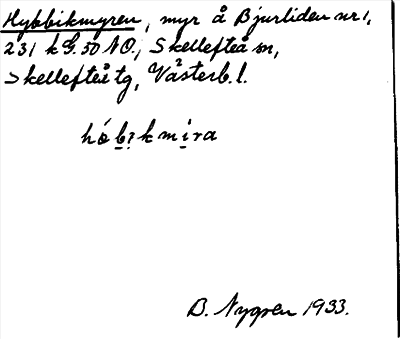 Hybbikmyren, myr å Bjurliden nr 1,
231 k G. 50 NO., Skellefteå sn,
Skellefteå tg, Västerb. l.
B. Nygren 1933.